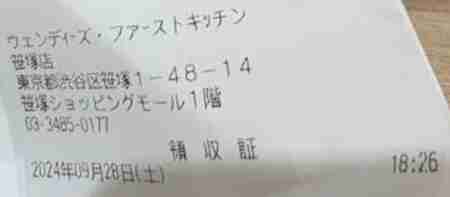 ウェンディーズ・ファーストキッチン
笹塚店
東京都渋谷区笹塚1-48-14
笹塚ショッピングモール1階
03-3485-0177
領収証
2024年09月28日(土) 18:26